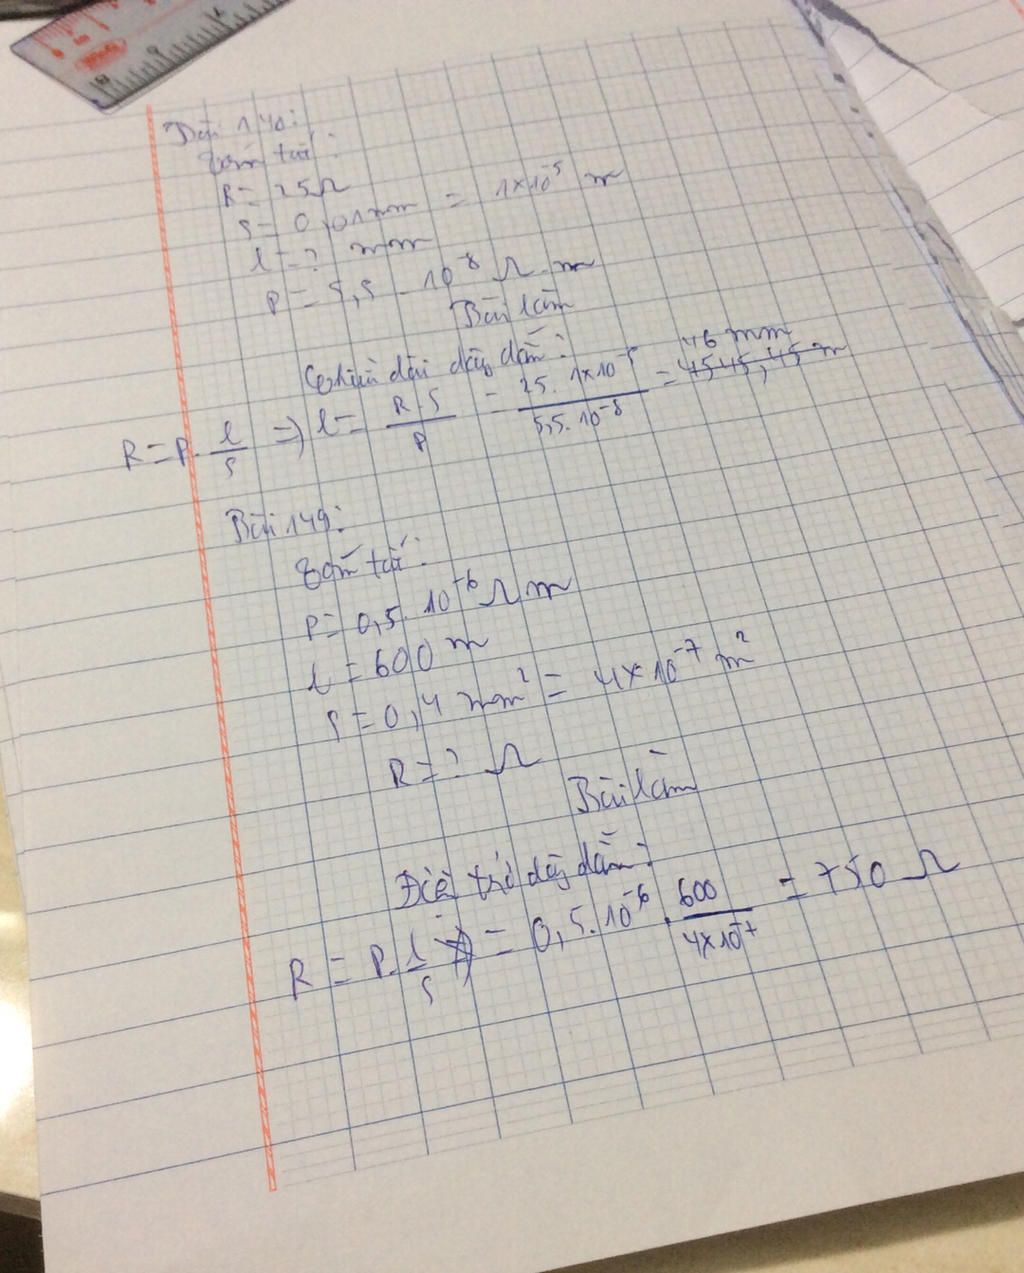 Bài 140:
Tóm tắt:
R = 25Ω
S = 0,01mm = 1x10⁻⁵ m
l = ? mm
ρ = 5,5 . 10⁻⁸ Ω.m
Bài làm
Chiều dài dây dẫn:
R = ρ. l/S => l = R.S/ρ = 25. 1x10⁻⁵/5,5. 10⁻⁸ = 4545,45 m 46 mm
Bài 149:
Tóm tắt:
ρ = 0,5. 10⁻⁶ Ω m
l = 600 m
S = 0,4 mm² = 4x10⁻⁷ m²
R = ? Ω
Bài làm
Điện trở dây dẫn:
R = ρ. l/S = 0,5. 10⁻⁶ . 600/4x10⁻⁷ = 750 Ω